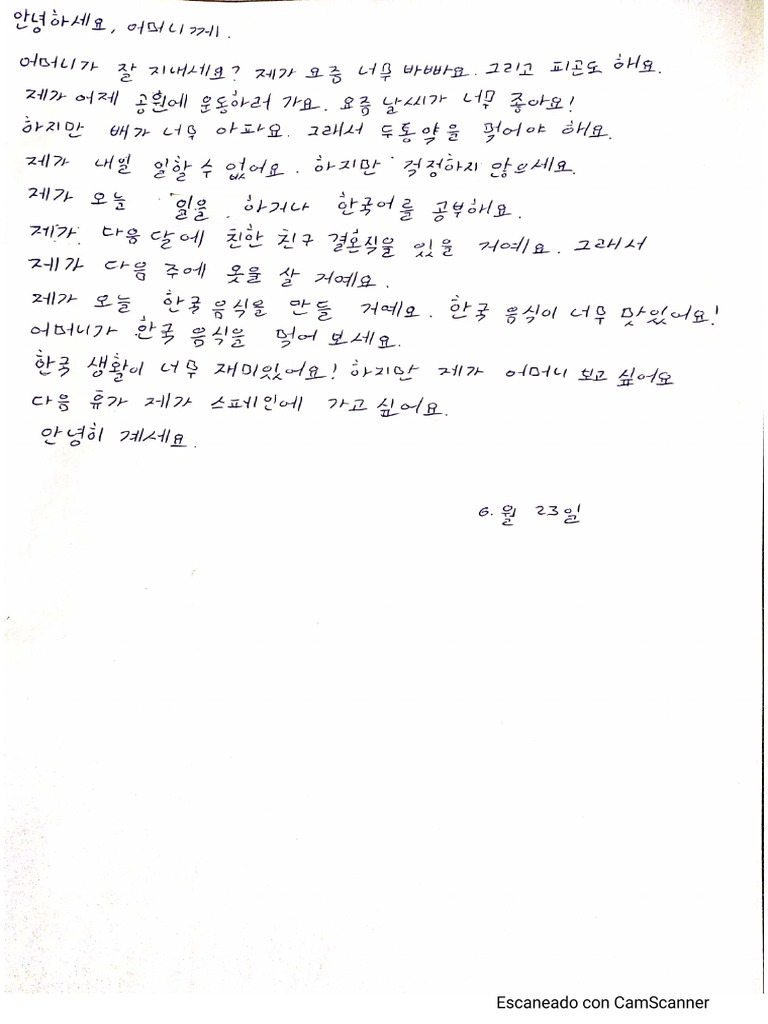 안녕하세요, 어머니께.
어머니가 잘 지내세요? 제가 요즘 너무 바빠요. 그리고 피곤도 해요.
제가 어제 공원에 운동하러 가요. 요즘 날씨가 너무 좋아요!
하지만 배가 너무 아파요. 그래서 두통약을 먹어야 해요.
제가 내일 일할 수 없어요. 하지만 걱정하지 않으세요.
제가 오늘 일을 하거나 한국어를 공부해요.
제가 다음 달에 친한 친구 결혼식을 있을 거예요. 그래서
제가 다음 주에 옷을 살 거예요.
제가 오늘 한국 음식을 만들 거예요. 한국 음식이 너무 맛있어요!
어머니가 한국 음식을 먹어 보세요.
한국 생활이 너무 재미있어요! 하지만 제가 어머니 보고 싶어요
다음 휴가 제가 스페인에 가고 싶어요.
안녕히 계세요.
6.월 23일
Escaneado con CamScanner